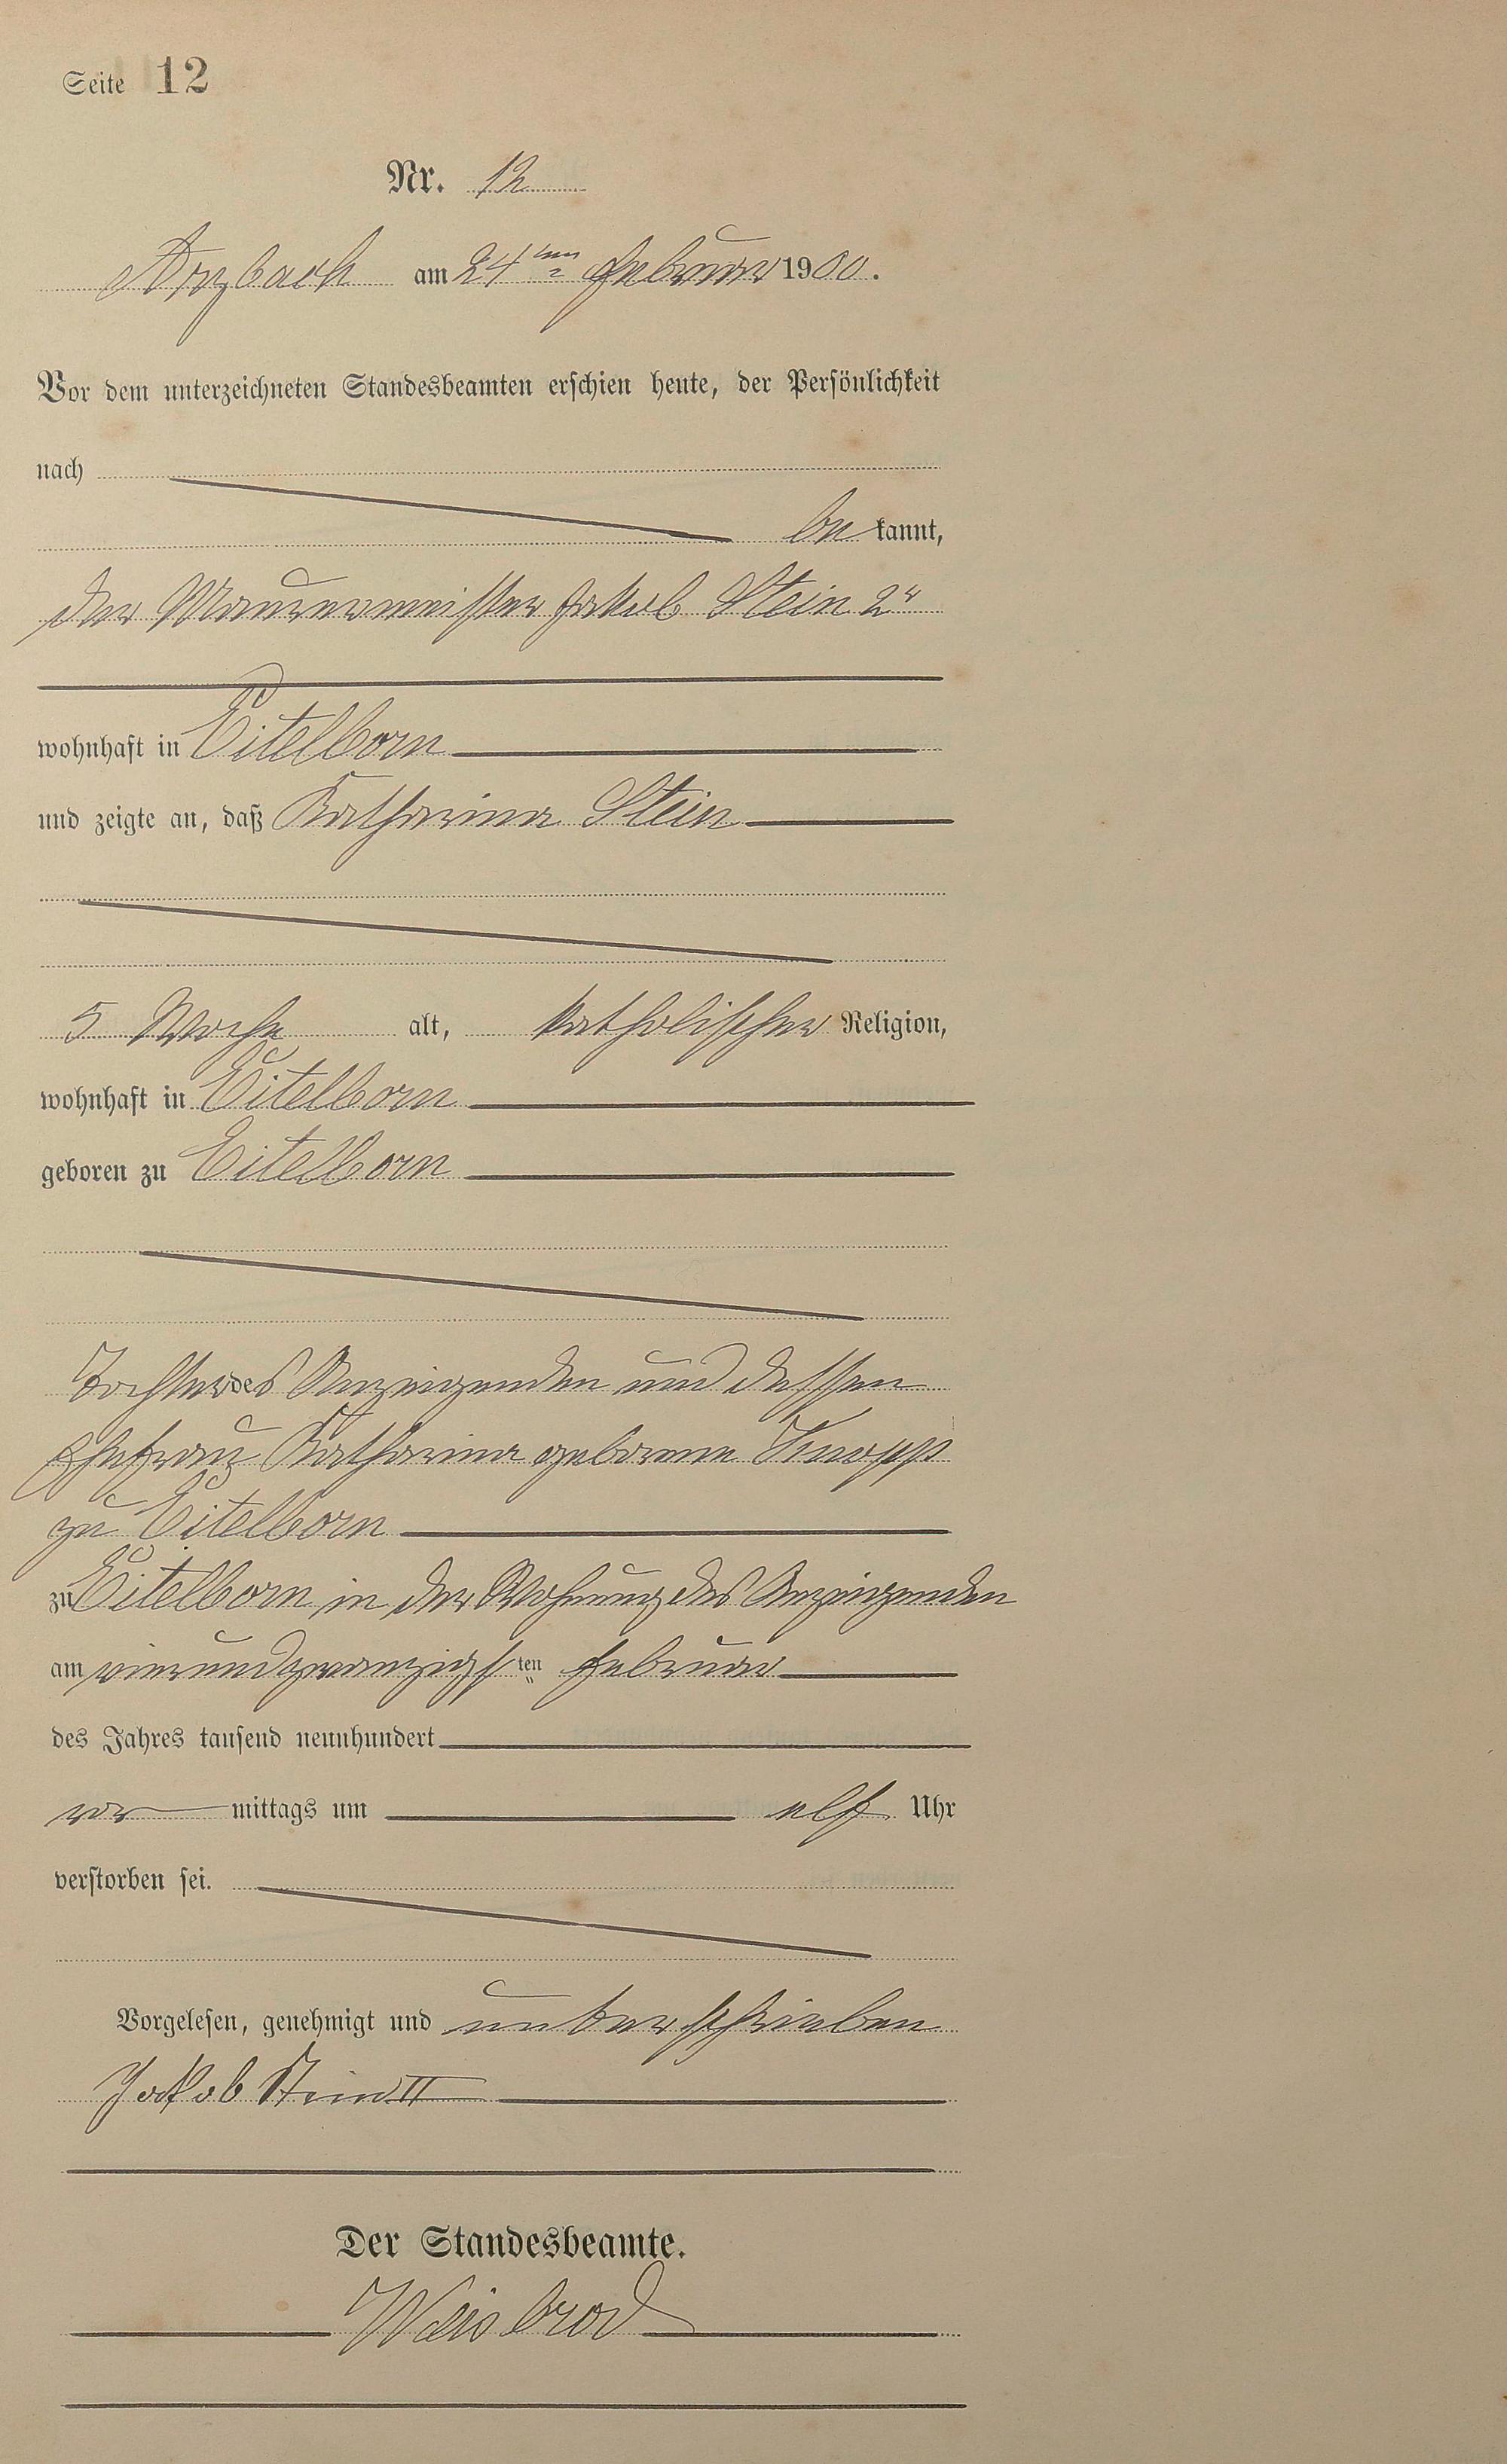 Seite 12
Nr. 12
Arzbach am 24ten Februar 1900.
Vor dem unterzeichneten Standesbeamten erschien heute, der Persönlichkeit
nach
be kannt,
der Maurermeister Jakob Stein 2r
wohnhaft in Eitelborn
und zeigte an, daß Katharina Stein
5 Woche alt, katholischer Religion,
wohnhaft in Eitelborn
geboren zu Eitelborn
Tochter des Anzeigenden und dessen
Ehefrau Katharina geborene Knopp
zu Eitelborn
zu Eitelborn in der Wohnung des Anzeigenden
am vierundzwanzigsten Februar
des Jahres tausend neunhundert
vor mittags um elf Uhr
verstorben sei.
Vorgelesen, genehmigt und unterschrieben
Jakob Stein II
Der Standesbeamte.
Weisbrod